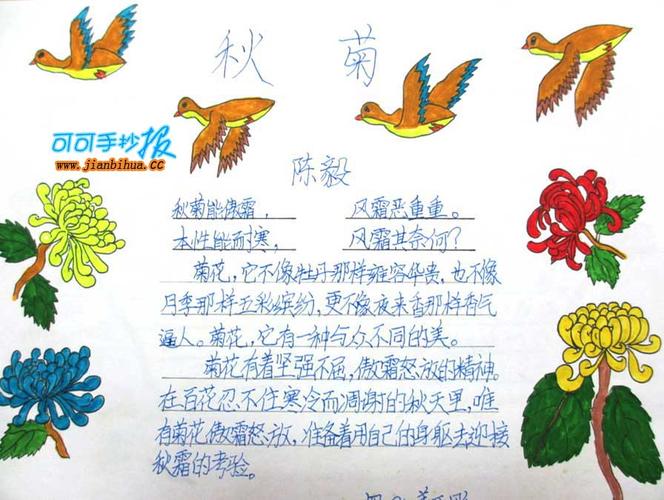 秋 菊
可可手抄报
www.jianbihua.cc
陈毅
秋菊能傲霜， 风霜恶重重。
本性能耐寒， 风霜其奈何？
菊花，它不像牡丹那样雍容华贵，也不像
月季那样五彩缤纷，更不像夜来香那样香气
逼人。菊花，它有一种与众不同的美。
菊花有着坚强不屈，傲霜怒放的精神。
在百花忍不住寒冷而凋谢的秋天里，唯
有菊花傲霜怒放，准备着用自己的身躯去迎接
秋霜的考验。